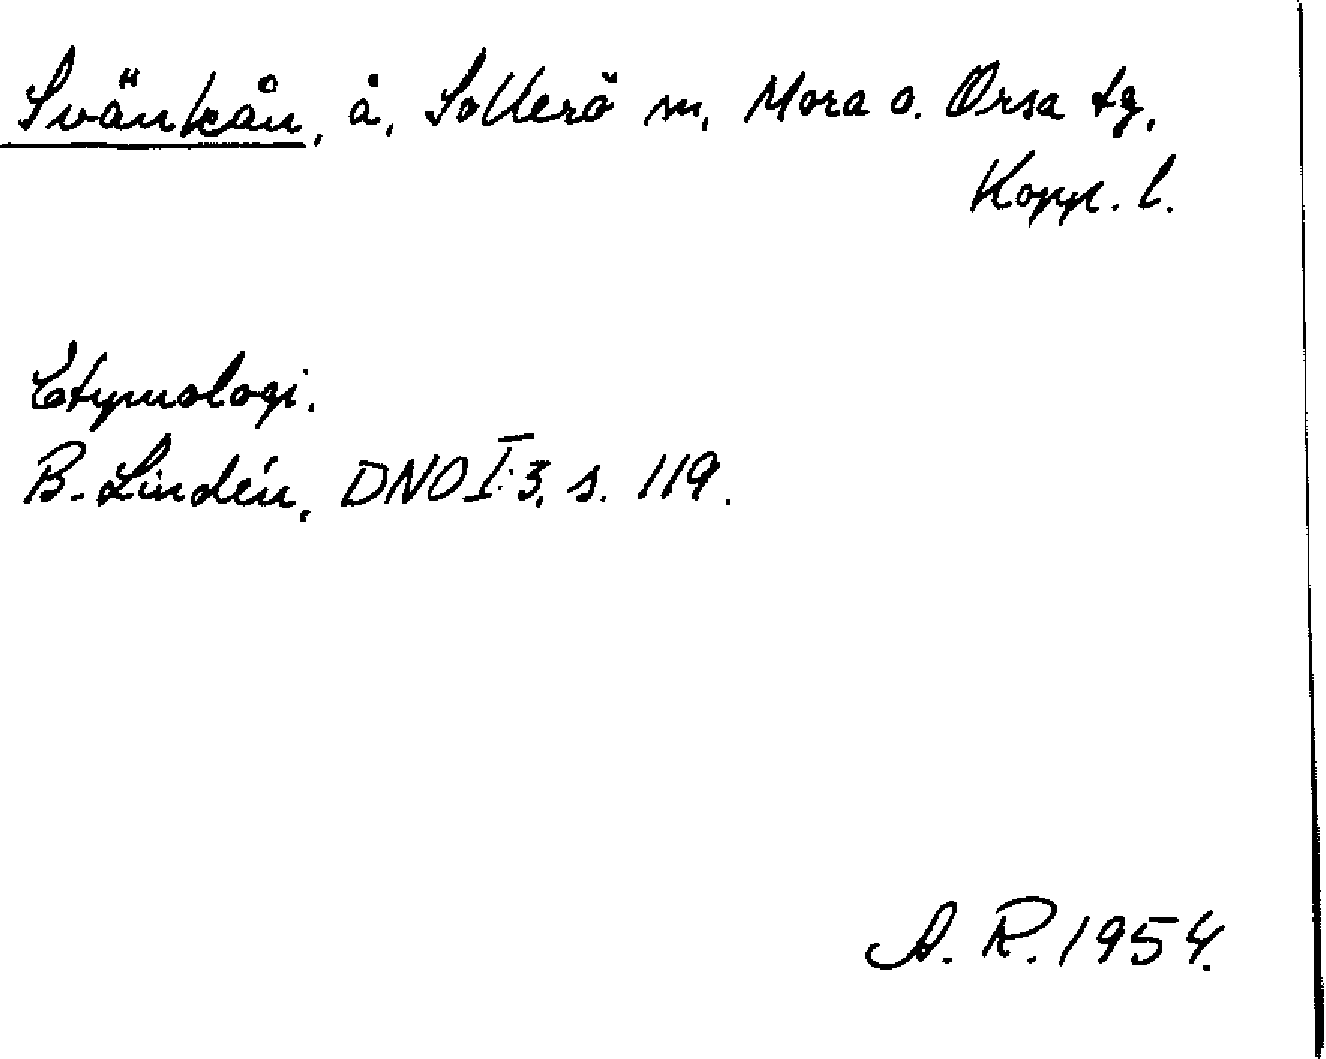 Svänkån, å, Sollerö m, Mora o. Orsa tg,
Kopp. l.
Etymologi.
B. Lindén, DNO I:3, s. 119.
A. R. 1954.